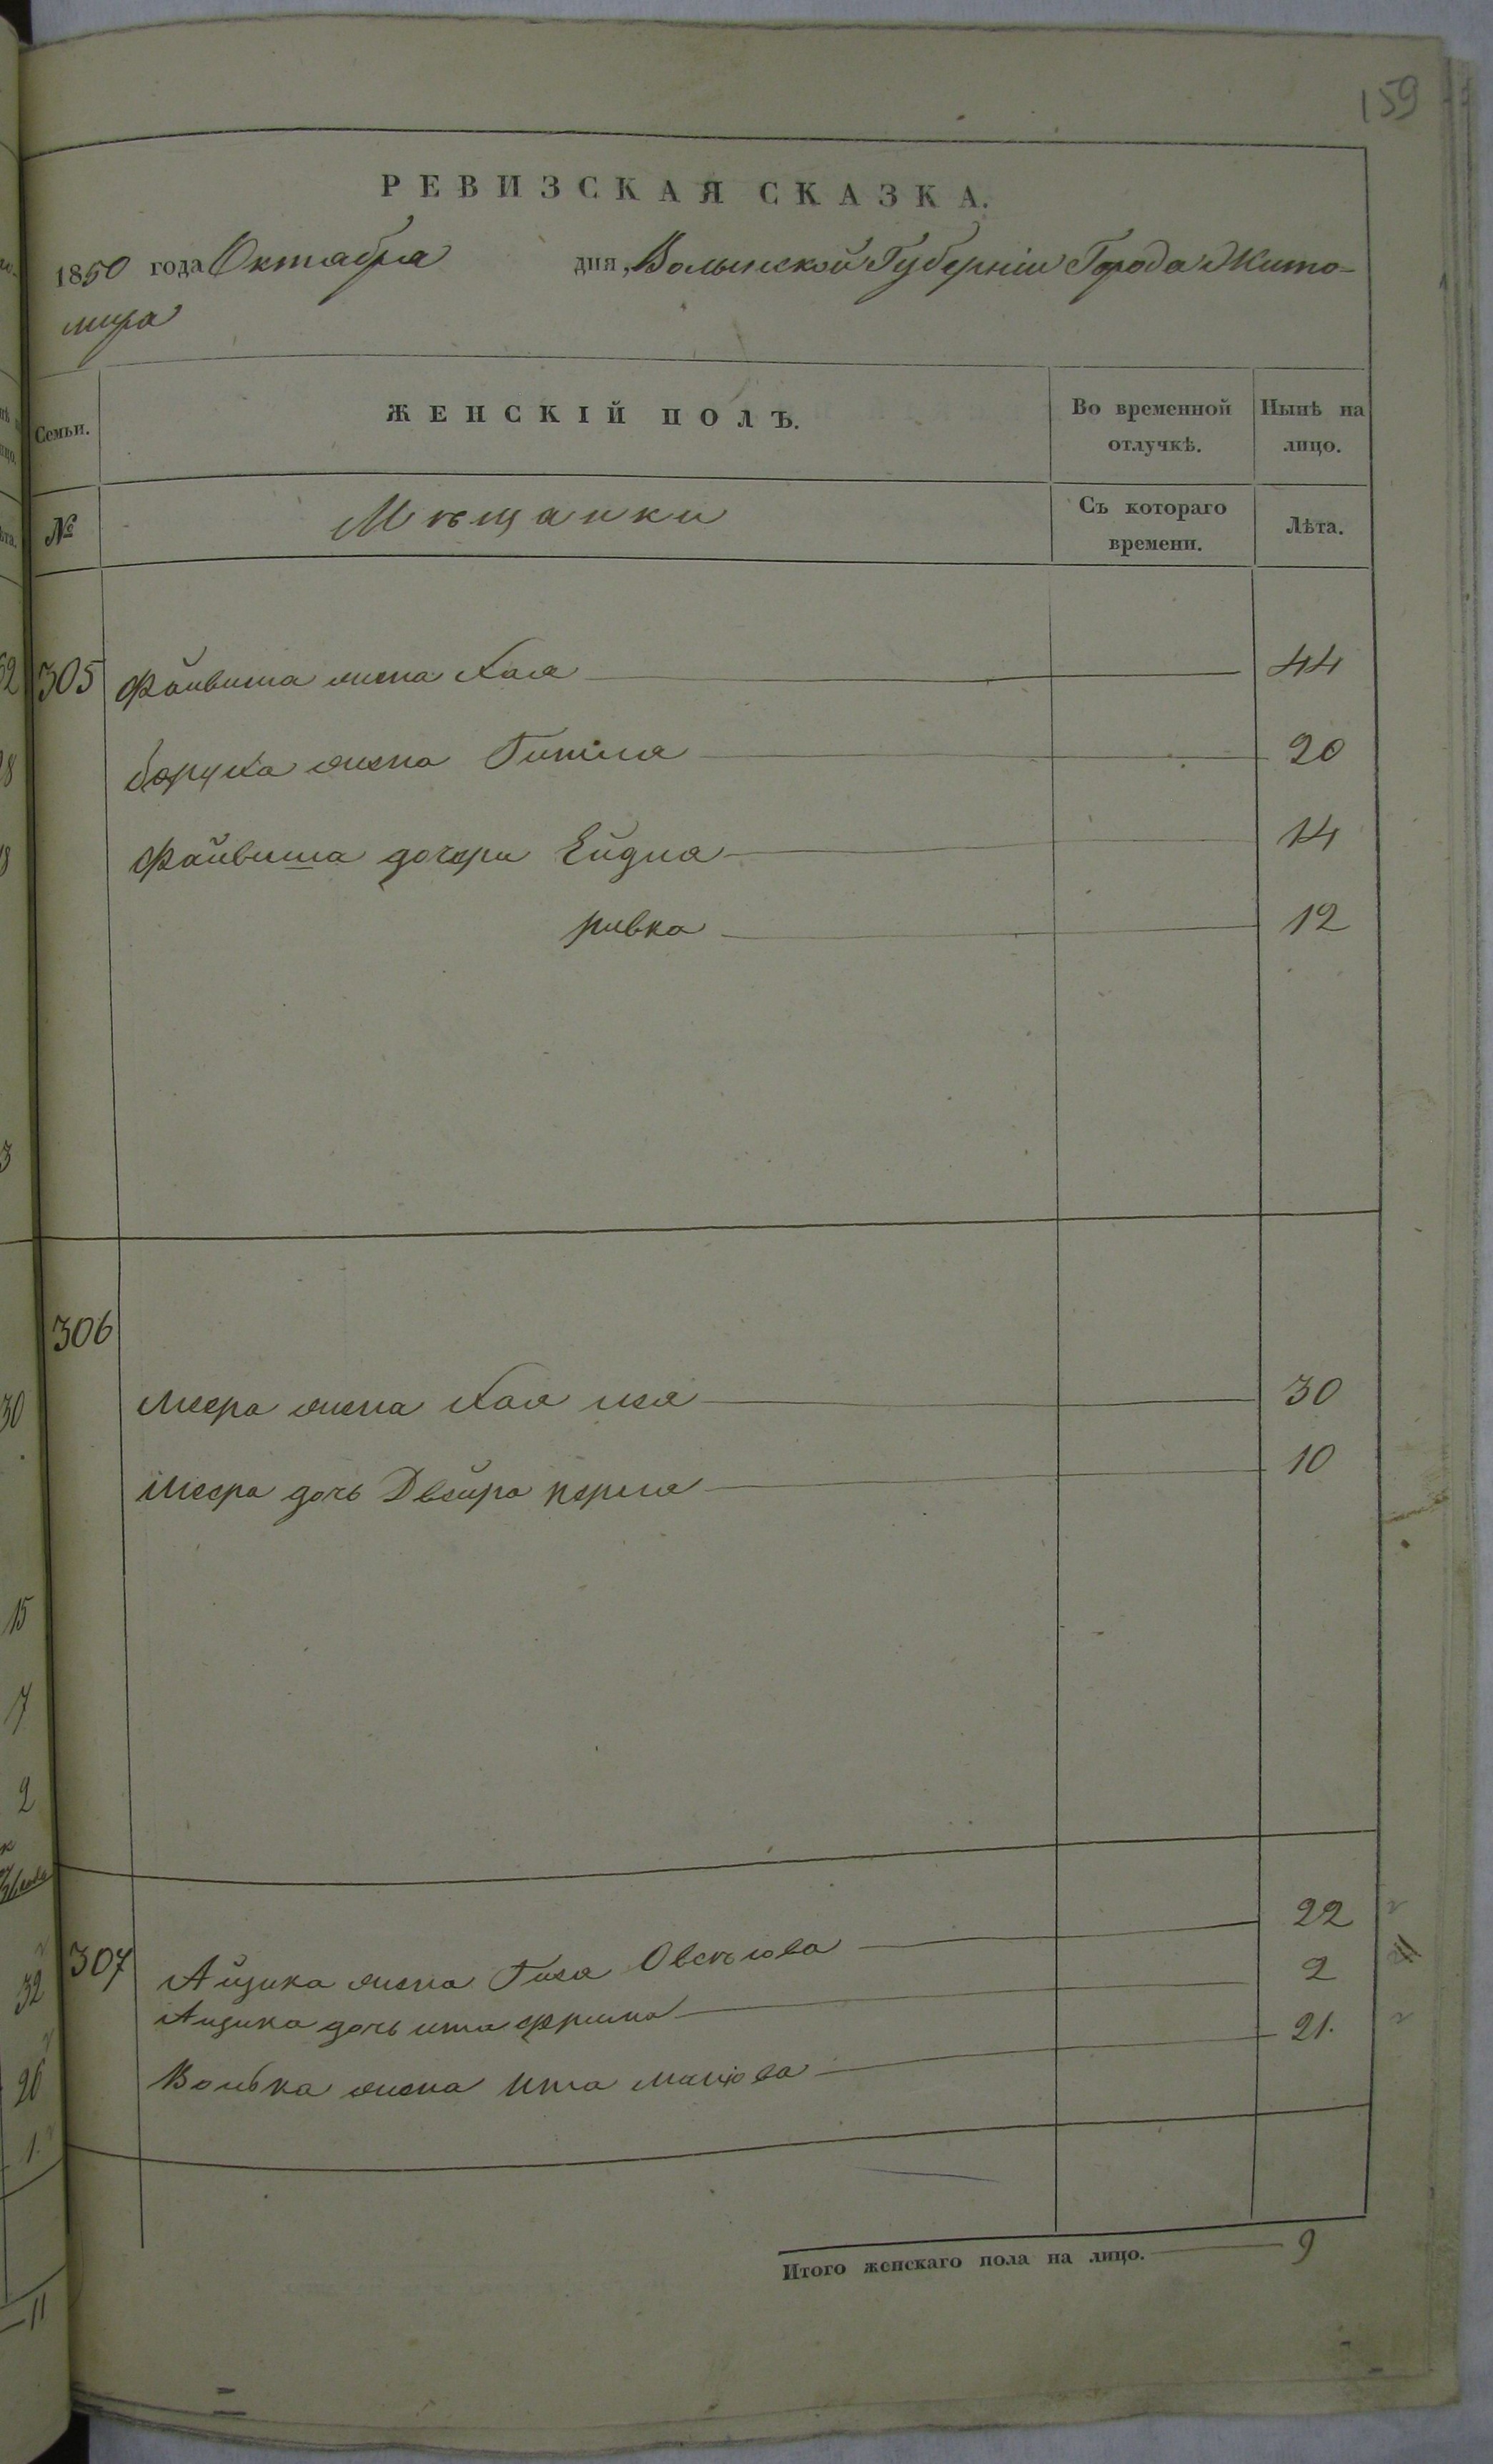 159
РЕВИЗСКАЯ СКАЗКА.
1850 года Октября дня, Волынской Губерніи Города Жито-
мира
Семьи. ЖЕНСКІЙ ПОЛЪ. Во временной отлучкѣ. Нынѣ на лицо.
№ Мѣщанки Съ котораго времени. Лѣта.
305 Файвиша жена Хая 44
Боруха жена Гитля 20
Файвиша дочери Ейдля 14
ривка 12
306
Меера жена Хая лея 30
Меера дочь Двейра перля 10
307 Айзика жена Гися Овсѣова 22
Айзика дочь ита фрима 2
Волька жена Ита 21.
Итого женскаго пола на лицо. 9